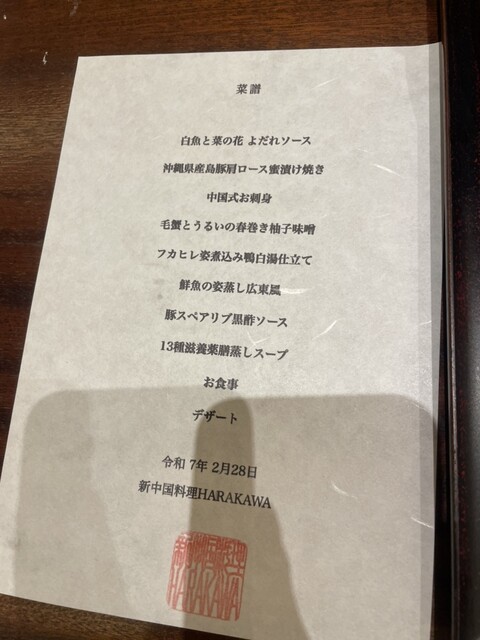 菜譜
白魚と菜の花 よだれソース
沖縄県産島豚肩ロース蜜漬け焼き
中国式お刺身
毛蟹とうるいの春巻き柚子味噌
フカヒレ姿煮込み鴨白湯仕立て
鮮魚の姿蒸し広東風
豚スペアリブ黒酢ソース
13種滋養薬膳蒸しスープ
お食事
デザート
令和 7年 2月28日
新中国料理HARAKAWA
新中国料理
HARAKAWA